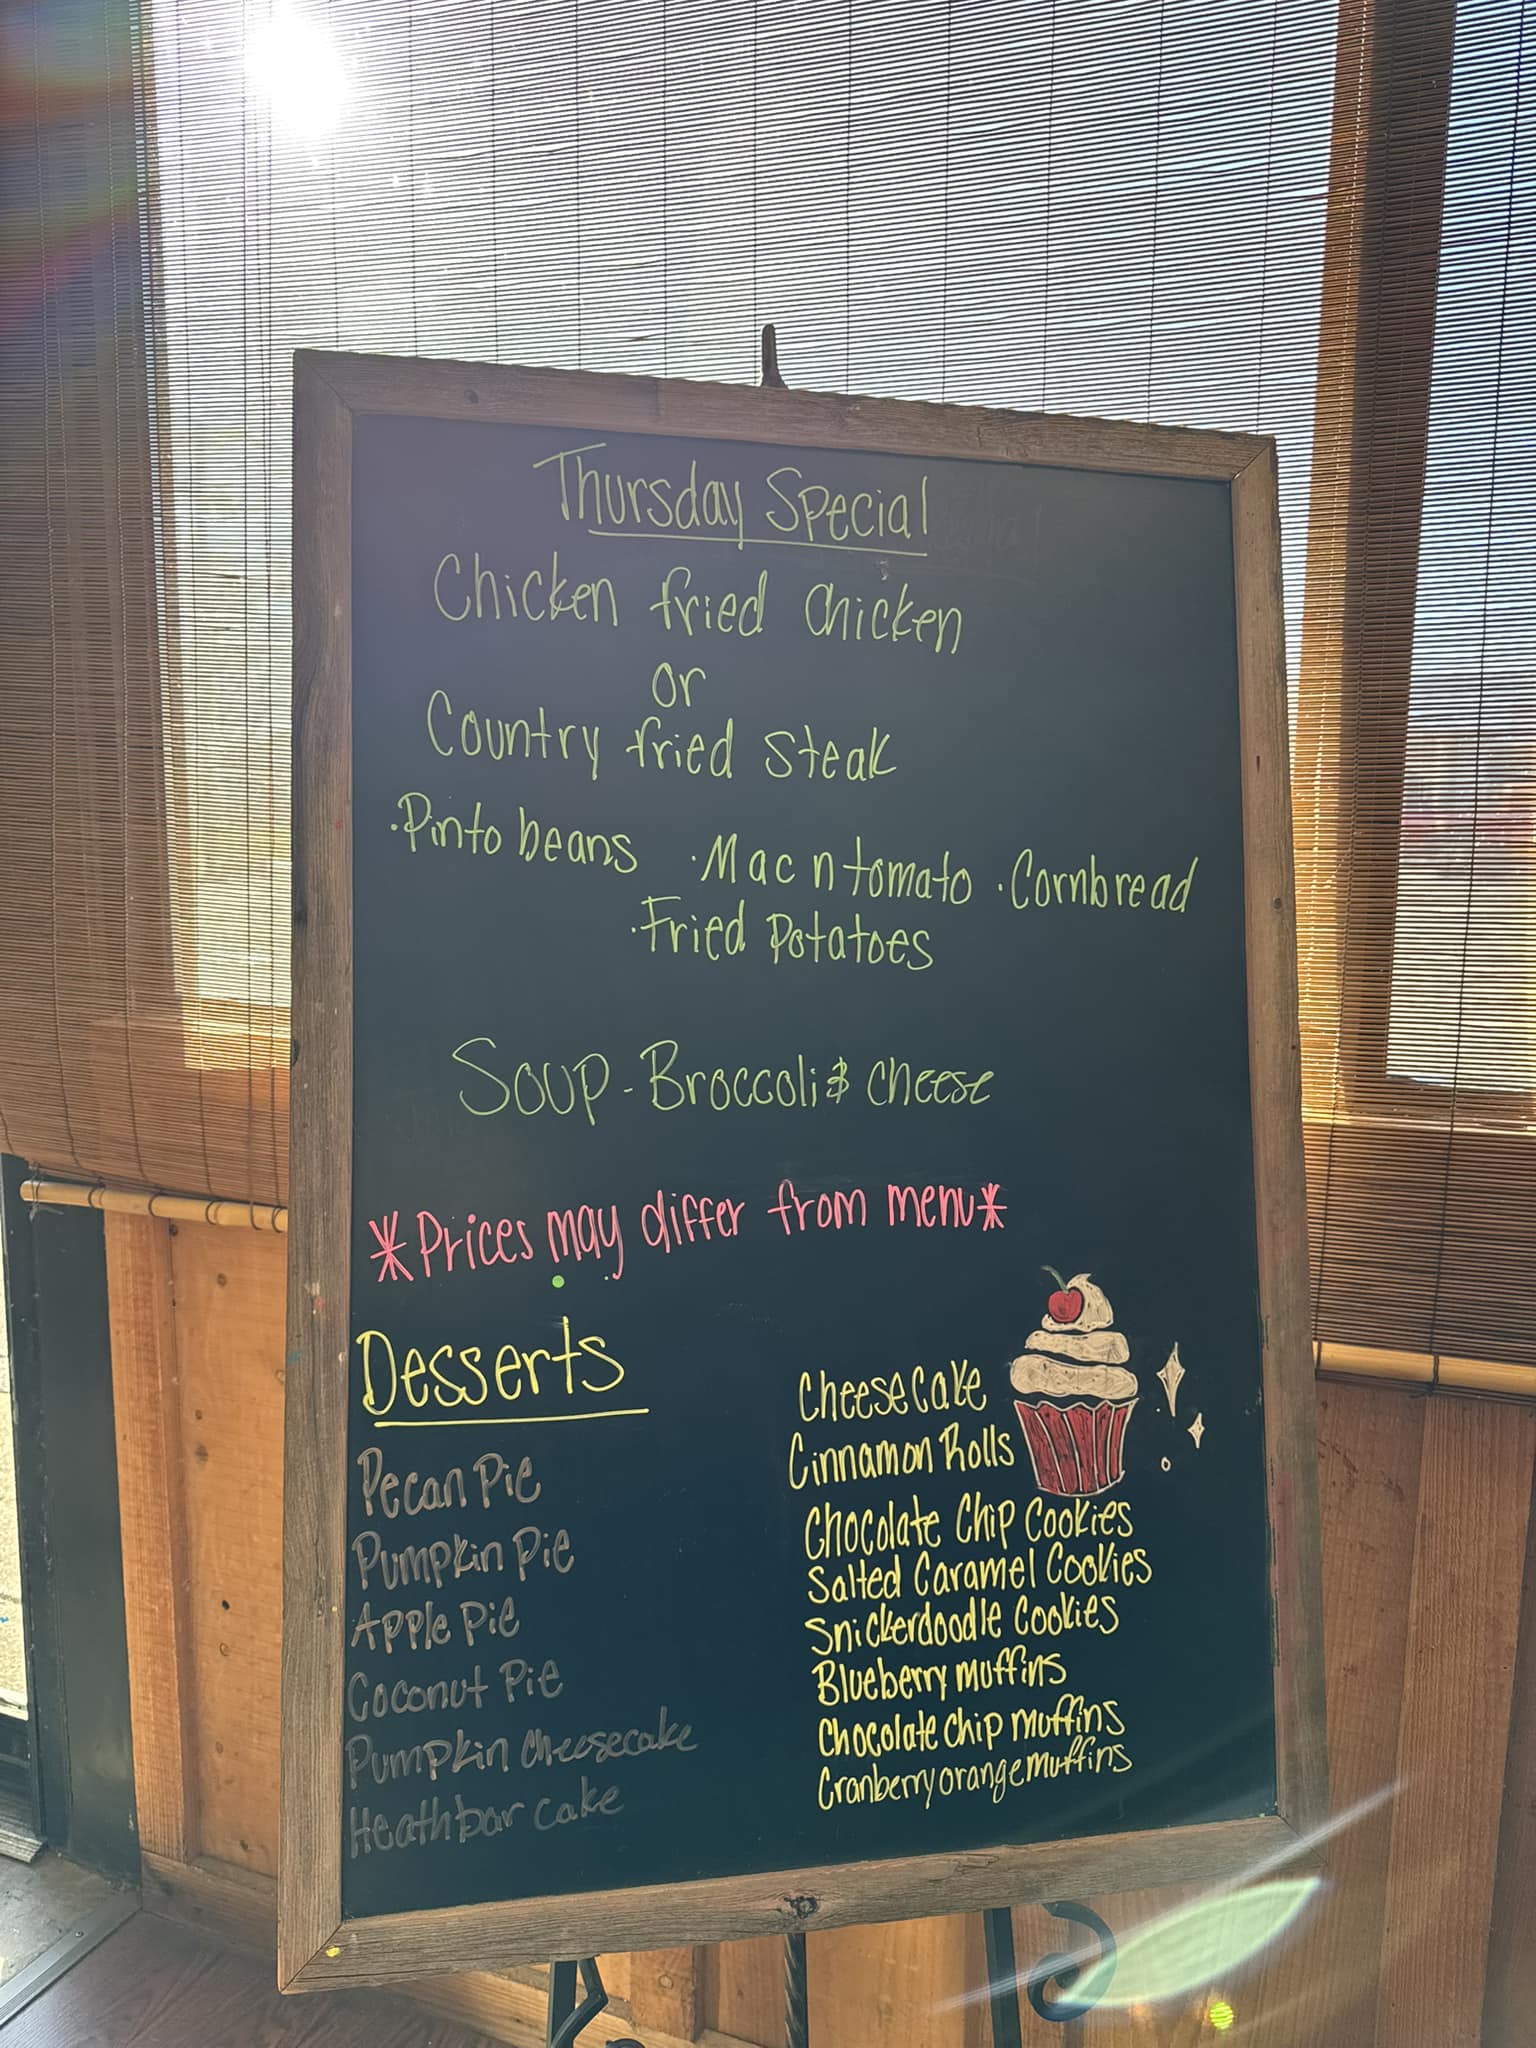 Thursday Special
Chicken fried Chicken
or
Country fried Steak
·Pinto beans ·Mac n tomato ·Cornbread
·Fried Potatoes
Soup-Broccoli & cheese
*Prices may differ from menu*
Desserts
Pecan Pie
Pumpkin Pie
Apple Pie
Coconut Pie
Pumpkin cheesecake
Heathbar cake
Cheesecake
Cinnamon Rolls
Chocolate Chip Cookies
Salted Caramel Cookies
Snickerdoodle Cookies
Blueberry muffins
Chocolate chip muffins
Cranberry orange muffins